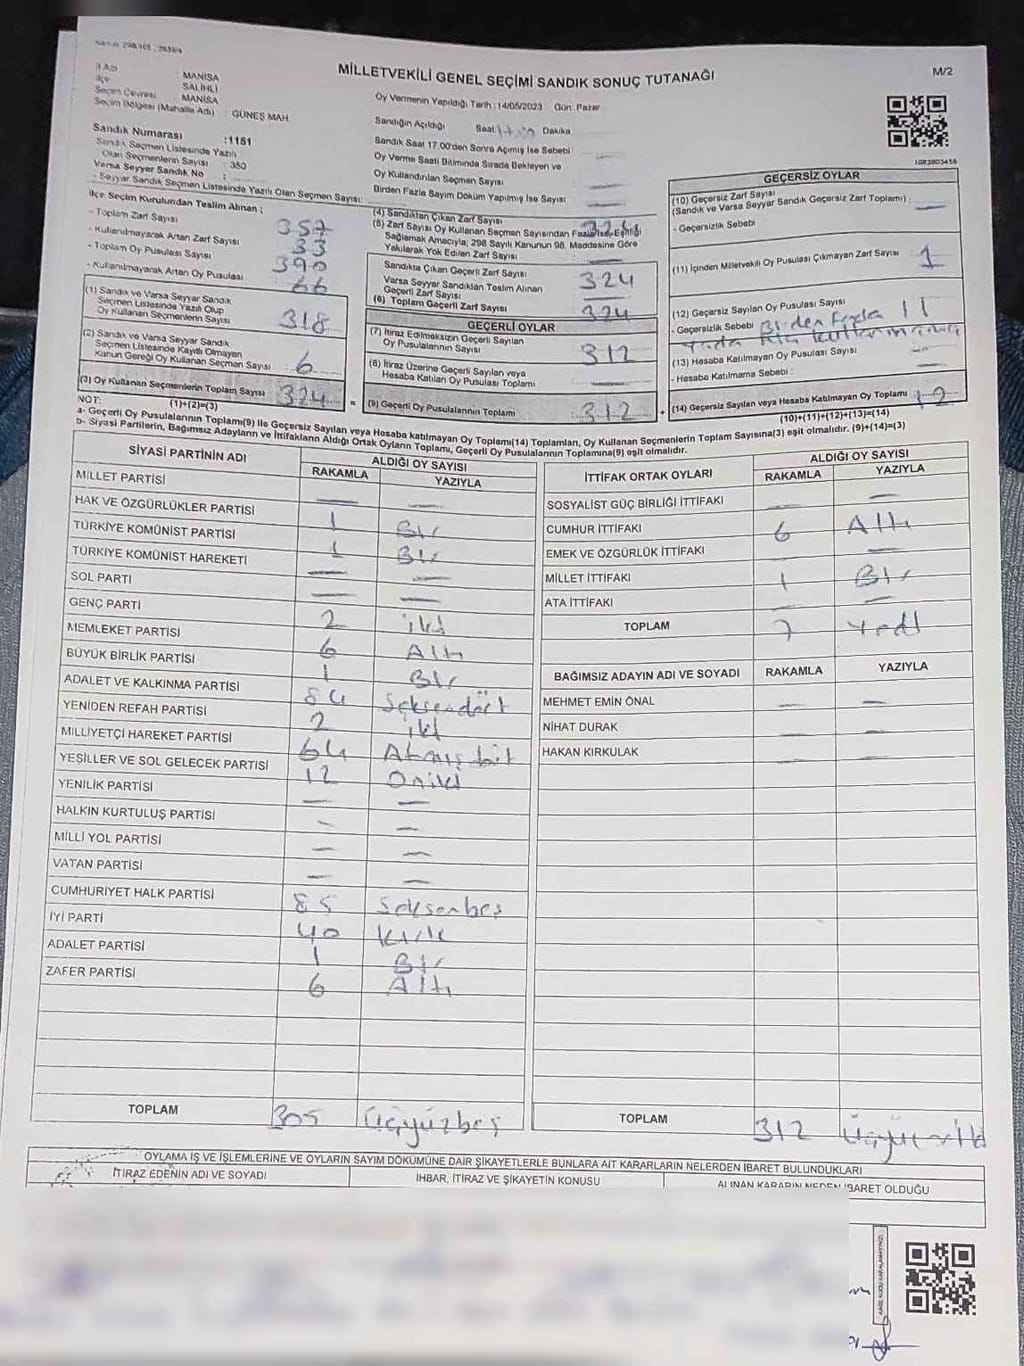 MİLLETVEKİLİ GENEL SEÇİMİ SANDIK SONUÇ TUTANAĞI
M/2
İl Adı : MANİSA
İlçe : SALİHLİ
Seçim Çevresi : MANİSA
Seçim Bölgesi (Mahalle Adı) : GÜNEŞ MAH.
Sandık Numarası : 1181
Sandık Seçmen Listesinde Yazılı
Olan Seçmenlerin Sayısı : 350
Varsa Seyyar Sandık No :
- Seyyar Sandık Seçmen Listesinde Yazılı Olan Seçmen Sayısı:
İlçe Seçim Kurulundan Teslim Alınan ;
- Toplam Zarf Sayısı 357
- Kullanılmayarak Artan Zarf Sayısı 33
- Toplam Oy Pusulası Sayısı 390
- Kullanılmayarak Artan Oy Pusulası 66
(1) Sandık ve Varsa Seyyar Sandık
Seçmen Listesinde Yazılı Olup
Oy Kullanan Seçmenlerin Sayısı 318
(2) Sandık ve Varsa Seyyar Sandık
Seçmen Listesinde Kayıtlı Olmayan
Kanun Gereği Oy Kullanan Seçmen Sayısı : 6
(3) Oy Kullanan Seçmenlerin Toplam Sayısı 324
(1)+(2)=(3)
Oy Vermenin Yapıldığı Tarih :14/05/2023 Gün: Pazar
Sandığın Açıldığı Saat Dakika
Sandık Saat 17.00'den Sonra Açılmış İse Sebebi
Oy Verme Saati Bitiminde Sırada Bekleyen ve
Oy Kullandırılan Seçmen Sayısı
Birden Fazla Sayım Döküm Yapılmış İse Sayısı
(4) Sandıktan Çıkan Zarf Sayısı 324
(5) Zarf Sayısı Oy Kullanan Seçmen Sayısından Fazla İse, Eşitliği
Sağlamak Amacıyla; 298 Sayılı Kanunun 98. Maddesine Göre
Yakılarak Yok Edilen Zarf Sayısı
Sandıkta Çıkan Geçerli Zarf Sayısı 324
Varsa Seyyar Sandıktan Teslim Alınan
Geçerli Zarf Sayısı
(6) Toplam Geçerli Zarf Sayısı 324
GEÇERLİ OYLAR
(7) İtiraz Edilmeksizin Geçerli Sayılan
Oy Pusulalarının Sayısı 312
(8) İtiraz Üzerine Geçerli Sayılan veya
Hesaba Katılan Oy Pusulası Toplamı
(9) Geçerli Oy Pusulalarının Toplamı 312
GEÇERSİZ OYLAR
(10) Geçersiz Zarf Sayısı
(Sandık ve Varsa Seyyar Sandık Geçersiz Zarf Toplamı) :
- Geçersizlik Sebebi
(11) İçinden Milletvekili Oy Pusulası Çıkmayan Zarf Sayısı 1
(12) Geçersiz Sayılan Oy Pusulası Sayısı 11
- Geçersizlik Sebebi Birden Fazla
yada
(13) Hesaba Katılmayan Oy Pusulası Sayısı
- Hesaba Katılmama Sebebi :
(14) Geçersiz Sayılan veya Hesaba Katılmayan Oy Toplamı 12
(10)+(11)+(12)+(13)=(14)
NOT:
a- Geçerli Oy Pusulalarının Toplamı(9) ile Geçersiz Sayılan veya Hesaba Katılmayan Oy Toplamı(14) Toplamları, Oy Kullanan Seçmenlerin Toplam Sayısına(3) eşit olmalıdır. (9)+(14)=(3)
b- Siyasi Partilerin, Bağımsız Adayların ve İttifakların Aldığı Ortak Oyların Toplamı, Geçerli Oy Pusulalarının Toplamına(9) eşit olmalıdır.
SİYASİ PARTİNİN ADI ALDIĞI OY SAYISI
RAKAMLA YAZIYLA
MİLLET PARTİSİ —  —
HAK VE ÖZGÜRLÜKLER PARTİSİ 1 Bir
TÜRKİYE KOMÜNİST PARTİSİ 1 Bir
TÜRKİYE KOMÜNİST HAREKETİ — —
SOL PARTİ — —
GENÇ PARTİ 2 iki
MEMLEKET PARTİSİ 6 Altı
BÜYÜK BİRLİK PARTİSİ 1 Bir
ADALET VE KALKINMA PARTİSİ 84 Seksendört
YENİDEN REFAH PARTİSİ 2 iki
MİLLİYETÇİ HAREKET PARTİSİ 64 Atmışdört
YEŞİLLER VE SOL GELECEK PARTİSİ 12 Oniki
YENİLİK PARTİSİ — —
HALKIN KURTULUŞ PARTİSİ — —
MİLLİ YOL PARTİSİ — —
VATAN PARTİSİ — —
CUMHURİYET HALK PARTİSİ 85 Seksenbeş
İYİ PARTİ 40 Kırk
ADALET PARTİSİ 1 Bir
ZAFER PARTİSİ 6 Altı
TOPLAM 305 Üçyüzbeş
İTTİFAK ORTAK OYLARI ALDIĞI OY SAYISI
RAKAMLA YAZIYLA
SOSYALİST GÜÇ BİRLİĞİ İTTİFAKI —
CUMHUR İTTİFAKI 6 Altı
EMEK VE ÖZGÜRLÜK İTTİFAKI —
MİLLET İTTİFAKI 1 Bir
ATA İTTİFAKI — —
TOPLAM 7 Yedi
BAĞIMSIZ ADAYIN ADI VE SOYADI RAKAMLA YAZIYLA
MEHMET EMİN ÖNAL — —
NİHAT DURAK — —
HAKAN KIRKULAK — —
TOPLAM 312
OYLAMA İŞ VE İŞLEMLERİNE VE OYLARIN SAYIM DÖKÜMÜNE DAİR ŞİKAYETLERLE BUNLARA AİT KARARLARIN NELERDEN İBARET BULUNDUKLARI
İTİRAZ EDENİN ADI VE SOYADI İHBAR, İTİRAZ VE ŞİKAYETİN KONUSU ALINAN KARARIN NEDEN İBARET OLDUĞU